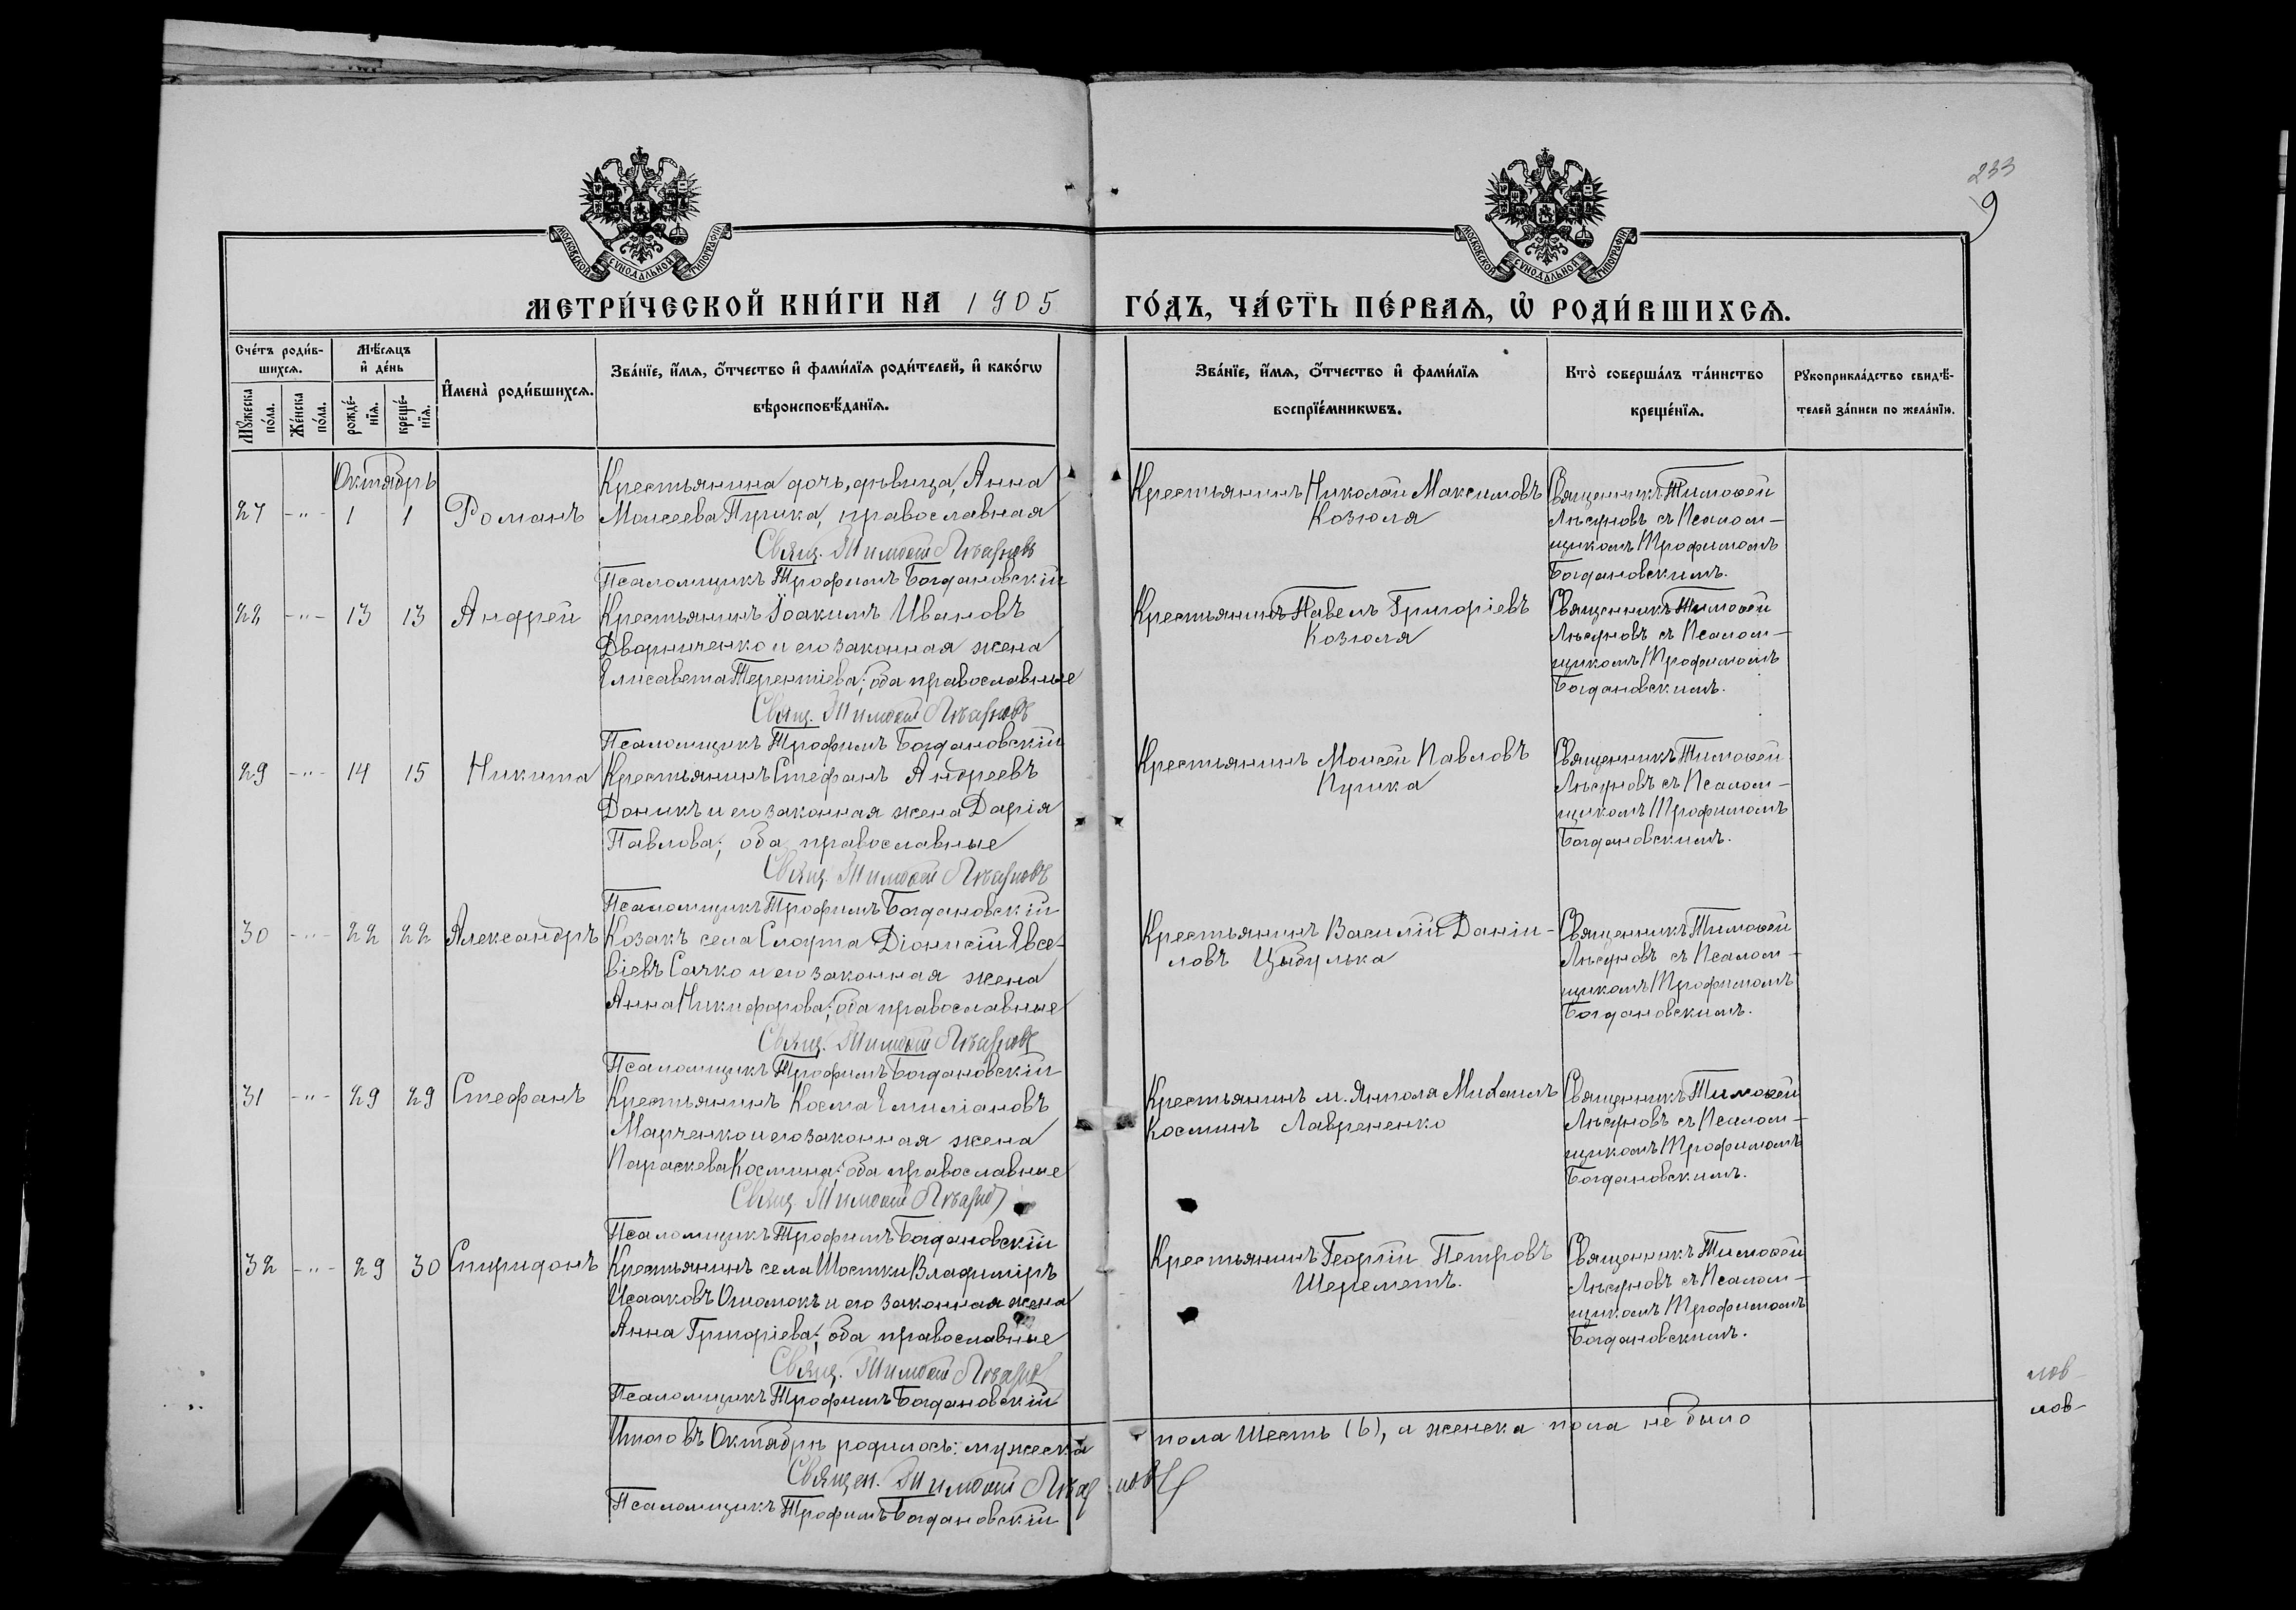 233
9
МОСКОВСКОЙ СѴНОДАЛЬНОЙ ТИПОГРАФІИ
МОСКОВСКОЙ СѴНОДАЛЬНОЙ ТИПОГРАФІИ
МЕТРИ́ЧЕСКОЙ КНИ́ГИ НА 1905 ГО́ДЪ, ЧА́СТЬ ПЕ́РВАѦ, Ѽ РОДИ́ВШИХСѦ.
Сче́тъ роди́в-
шихсѧ.
Мꙋ́жеска
по́ла.
Же́нска
по́ла.
Мѣ́сѧцъ
и҆ де́нь
рожде́-
нїѧ.
креще́-
нїѧ.
И҆мена̀ роди́вшихсѧ.
Зва́нїе, и҆́мѧ, ѻ҆́тчество и҆ фами́лїѧ роди́телей, и҆ како́гѡ
вѣроисповѣ́данїѧ.
Зва́нїе, и҆́мѧ, ѻ҆́тчество и҆ фами́лїѧ
воспрїе́мникѡвъ.
Кто̀ соверша́лъ та́инство
креще́нїѧ.
Рꙋкоприкла́дство свидѣ́-
телей за́писи по жела́нїю.
Октябрь
27 -"- 1 1 Романъ
Крестьянина дочь, дѣвица, Анна
Моисеева Пушка, православная
Свящ. Тимоѳей Лѣсуновъ
Псаломщикъ Трофимъ Богдановскій
Крестьянинъ Николай Максимовъ
Козюля
Священникъ Тимоѳей
Лѣсуновъ съ Псалом-
щикомъ Трофимомъ
Богдановскимъ.
28 -"- 13 13 Андрей
Крестьянинъ Іоакимъ Ивановъ
Дворниченко и его законная жена
Елисавета Терентіева; оба православные
Свящ. Тимоѳей Лѣсуновъ
Псаломщикъ Трофимъ Богдановскій
Крестьянинъ Павелъ Григоріевъ
Козюля
Священникъ Тимоѳей
Лѣсуновъ съ Псалом-
щикомъ Трофимомъ
Богдановскимъ.
29 -"- 14 15 Никита
Крестьянинъ Стефанъ Андреевъ
Доникъ и его законная жена Дарія
Павлова; оба православные
Свящ. Тимоѳей Лѣсуновъ
Псаломщикъ Трофимъ Богдановскій
Крестьянинъ Моисей Павловъ
Пушка
Священникъ Тимоѳей
Лѣсуновъ съ Псалом-
щикомъ Трофимомъ
Богдановскимъ.
30 -"- 22 22 Александръ
Козакъ села Слоута Діонисій Евсе-
віевъ Сачко и его законная жена
Анна Никифорова; оба православные
Свящ. Тимоѳей Лѣсуновъ
Псаломщикъ Трофимъ Богдановскій
Крестьянинъ Василій Даніи-
ловъ Цыбулька
Священникъ Тимоѳей
Лѣсуновъ съ Псалом-
щикомъ Трофимомъ
Богдановскимъ.
31 -"- 29 29 Стефанъ
Крестьянинъ Косма Емиліановъ
Марченко и его законная жена
Параскева Космина; оба православные
Свящ. Тимоѳей Лѣсуновъ
Псаломщикъ Трофимъ Богдановскій
Крестьянинъ м. Янполя Михаилъ
Косминъ Лаврененко
Священникъ Тимоѳей
Лѣсуновъ съ Псалом-
щикомъ Трофимомъ
Богдановскимъ.
32 -"- 29 30 Спиридонъ
Крестьянинъ села Шостки Владиміръ
Исааковъ Ошомокъ и его законная жена
Анна Григоріева; оба православные
Свящ. Тимоѳей Лѣсуновъ
Псаломщикъ Трофимъ Богдановскій
Крестьянинъ Георгій Петровъ
Шереметъ.
Священникъ Тимоѳей
Лѣсуновъ съ Псалом-
щикомъ Трофимомъ
Богдановскимъ.
лов-
лов-
Итого въ Октябрѣ родилось: мужеска пола Шесть (6), а женска пола не было
Священ. Тимоѳей Лѣсуновъ
Псаломщикъ Трофимъ Богдановскій